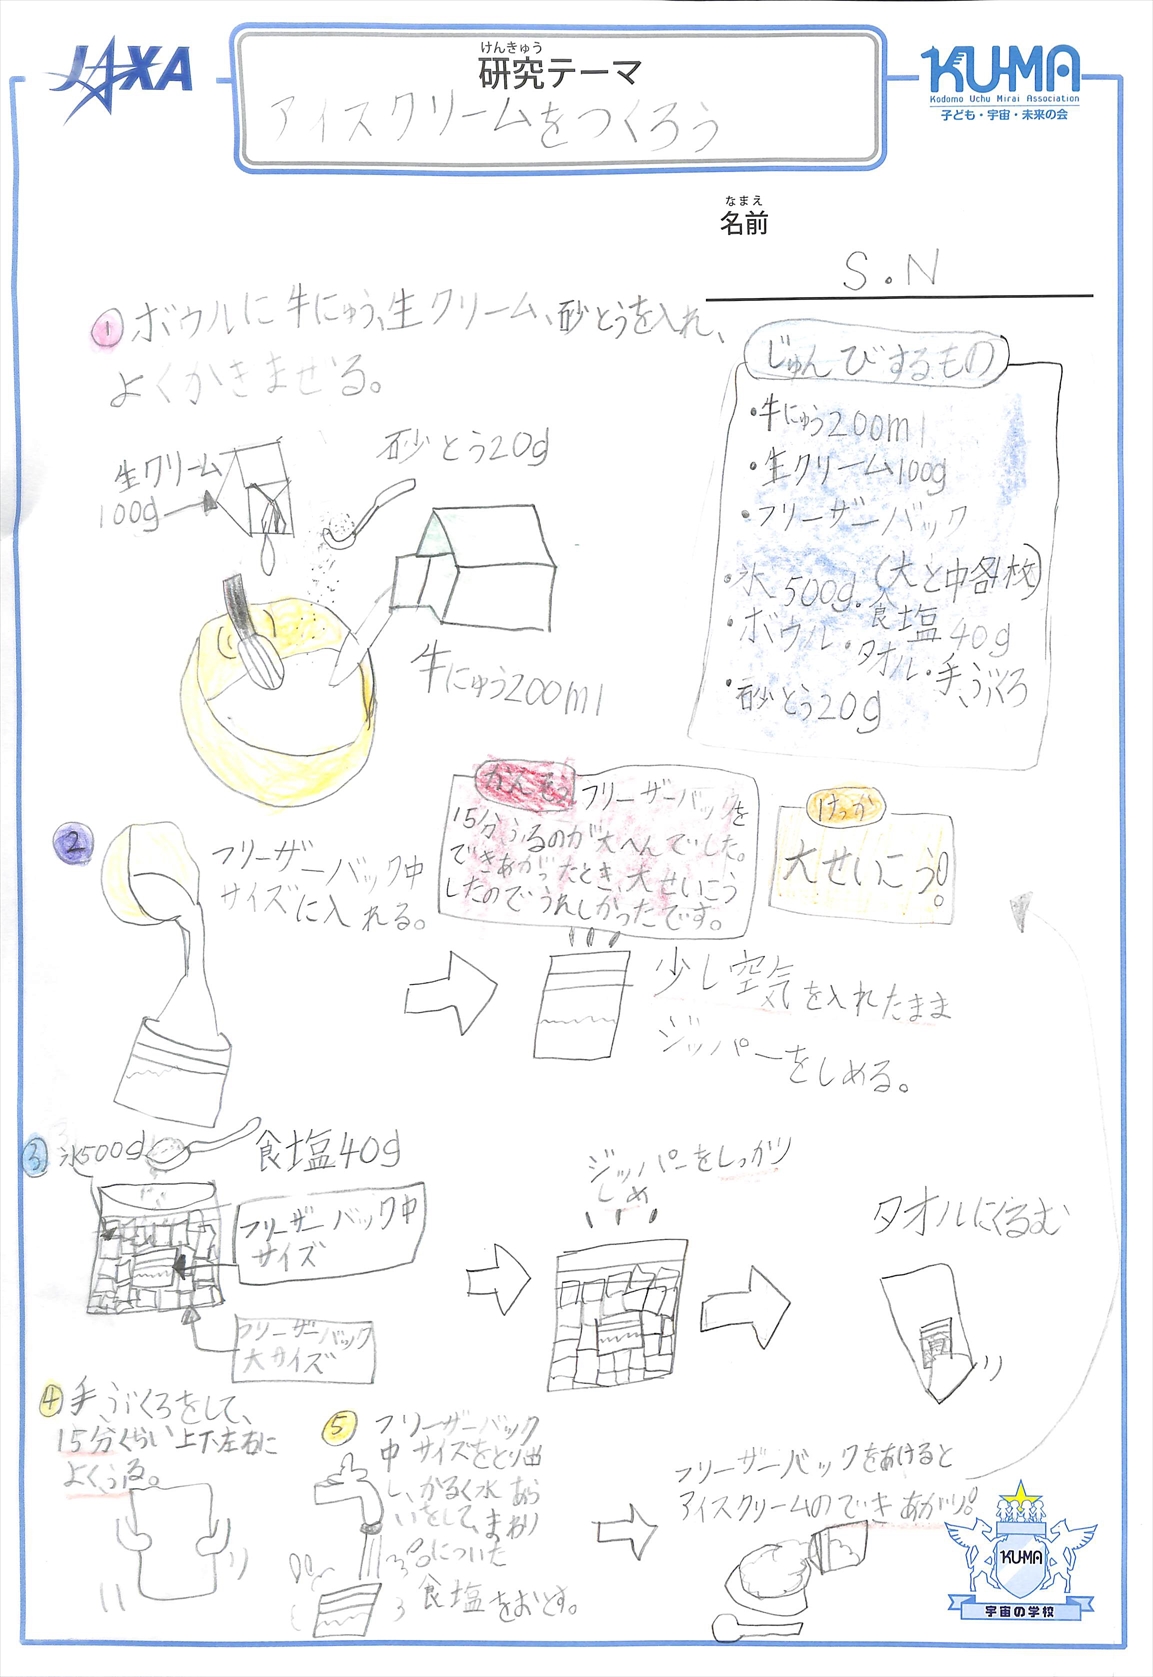 JAXA
けんきゅう
研究テーマ
アイスクリームをつくろう
KU-MA
Kodomo Uchu Mirai Association
子ども・宇宙・未来の会
なまえ
名前
S.N
① ボウルに牛にゅう、生クリーム、砂とうを入れ、
よくかきまぜる。
生クリーム
100g
砂とう20g
牛にゅう200ml
じゅんびするもの
・牛にゅう200ml
・生クリーム100g
・フリーザーバック
(大と中各1枚)
・氷500g・食塩40g
・ボウル・タオル・手ぶくろ
・砂とう20g
② フリーザーバック中
サイズに入れる。
かんそう
フリーザーバックを
15分ふるのが大へんでした。
できあがったとき、大せいこう
したのでうれしかったです。
けっか
大せいこう!
少し空気を入れたまま
ジッパーをしめる。
③ 氷500g
食塩40g
フリーザーバック中
サイズ
フリーザーバック
大サイズ
ジッパーをしっかり
しめ
タオルにくるむ
④ 手ぶくろをして、
15分くらい上下左右に
よくふる。
⑤ フリーザーバック
中サイズをとり出
し、かるく水あら
いをして、まわり
についた
食塩をおとす。
フリーザーバックをあけると
アイスクリームのできあがり!
KU-MA
宇宙の学校